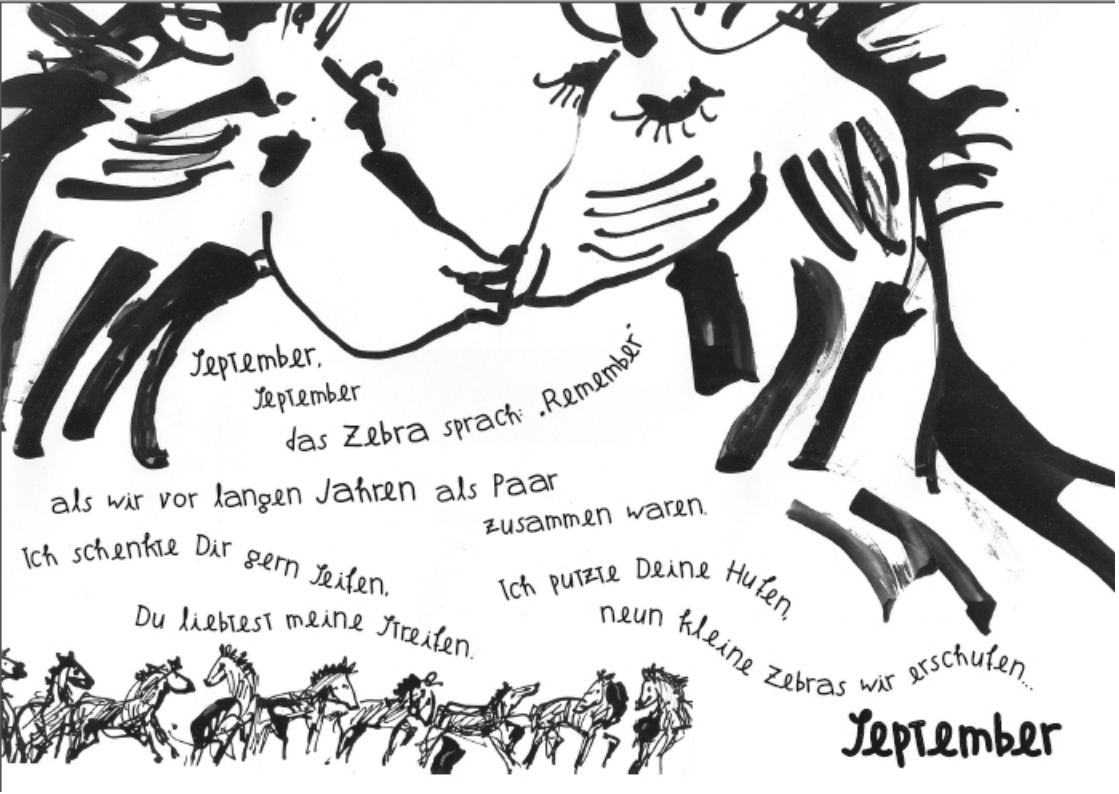 September,
September
das Zebra sprach: „Remember“
als wir vor langen Jahren als Paar
zusammen waren.
Ich schenkte Dir gern Seifen,
Du liebtest meine Streifen.
Ich putzte Deine Hufen,
neun kleine Zebras wir erschufen...
September